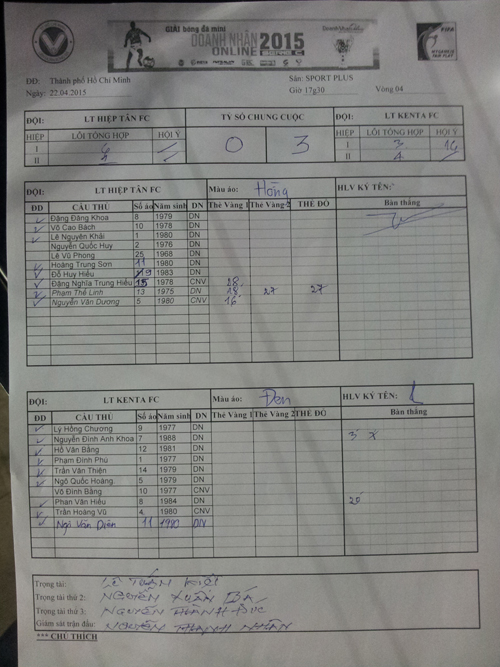 GIẢI bóng đá mini
DOANH NHÂN 2015
ONLINE
FIFA
ĐĐ: Thành phố Hồ Chí Minh
Sân: SPORT PLUS
Ngày: 22.04.2015
Giờ 17g30
Vòng 04
ĐỘI: LT HIỆP TÂN FC TỶ SỐ CHUNG CUỘC ĐỘI: LT KENTA FC
HIỆP LỖI TỔNG HỢP HỘI Ý 0 3 HIỆP LỖI TỔNG HỢP HỘI Ý
I 6 I 3
II II 4
ĐỘI: LT HIỆP TÂN FC Màu áo: Hồng HLV KÝ TÊN:
ĐD CẦU THỦ Số áo Năm sinh DN Thẻ Vàng 1 Thẻ Vàng 2 THẺ ĐỎ Bàn thắng
Đặng Đăng Khoa 8 1979 DN
Võ Cao Bách 10 1978 DN
Lê Nguyên Khải 1 1980 DN
Nguyễn Quốc Huy 2 1976 DN
Lê Vũ Phong 25 1968 DN
Hoàng Trung Sơn 11 1980 DN
Đỗ Huy Hiếu 19 1983 DN
Đặng Nghĩa Trung Hiếu 15 1978 CNV 28
Phạm Thế Linh 13 1975 DN 18 27 27
Nguyễn Văn Dương 5 1980 CNV 16
ĐỘI: LT KENTA FC Màu áo: Đen HLV KÝ TÊN:
ĐD CẦU THỦ Số áo Năm sinh DN Thẻ Vàng 1 Thẻ Vàng 2 THẺ ĐỎ Bàn thắng
Lý Hồng Chương 9 1977 DN
Nguyễn Đình Anh Khoa 7 1988 DN 3 x
Hồ Văn Bằng 12 1981 DN
Phạm Đình Phú 1 1977 DN
Trần Văn Thiện 14 1979 DN
Ngô Quốc Hoàng 5 1979 DN
Võ Đình Bằng 10 1977 CNV
Phan Văn Hiếu 8 1984 DN 20
Trần Hoàng Vũ 4 1980 CNV
Ngô Văn Diên 11 1980 DN
Trọng tài: LÊ TUẤN
Trọng tài thứ 2: NGUYỄN XUÂN BÁ
Trọng tài thứ 3: NGUYỄN THÀNH ĐỨC
Giám sát trận đấu: NGUYỄN THANH NHÂN
*** CHÚ THÍCH